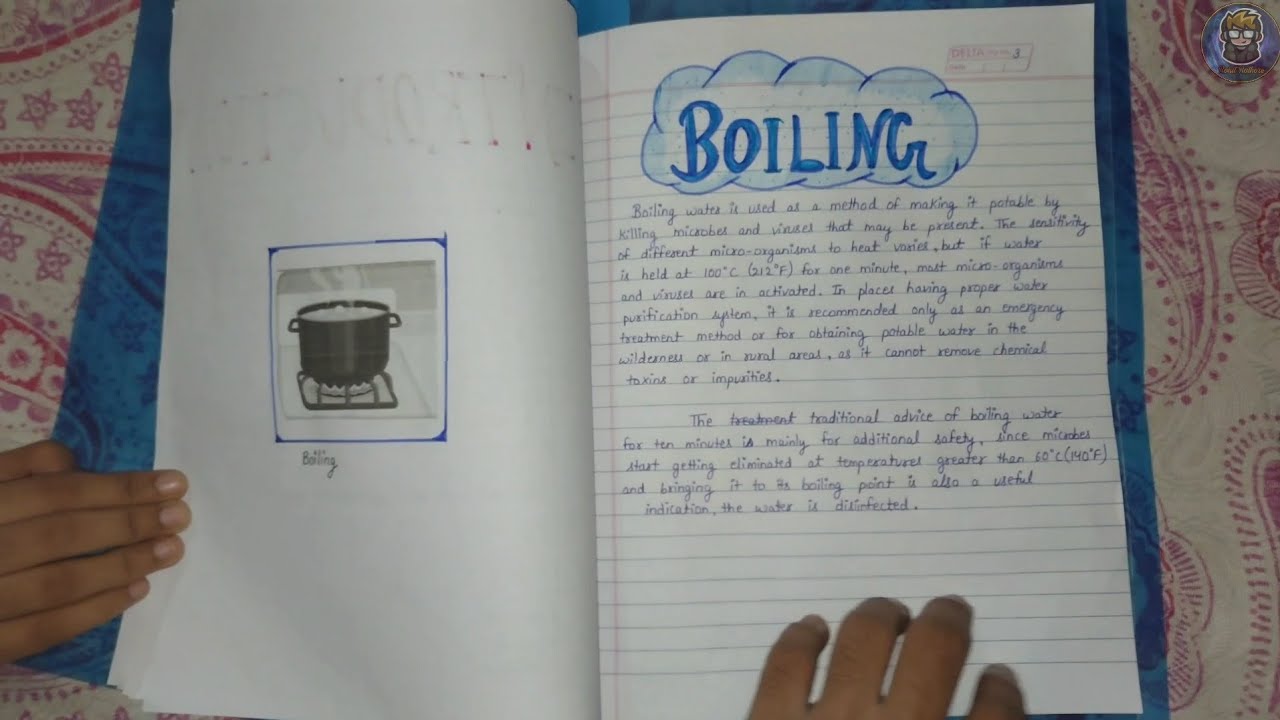 Boiling
DELTA Pg No. 3
Date
BOILING
Boiling water is used as a method of making it potable by
killing microbes and viruses that may be present. The sensitivity
of different micro-organisms to heat varies, but if water
is held at 100°C (212°F) for one minute, most micro-organisms
and viruses are in activated. In places having proper water
purification system, it is recommended only as an emergency
treatment method or for obtaining potable water in the
wilderness or in rural areas, as it cannot remove chemical
toxins or impurities.
The treatment traditional advice of boiling water
for ten minutes is mainly for additional safety, since microbes
start getting eliminated at temperatures greater then 60°C (140°F)
and bringing it to its boiling point is also a useful
indication, the water is disinfected.